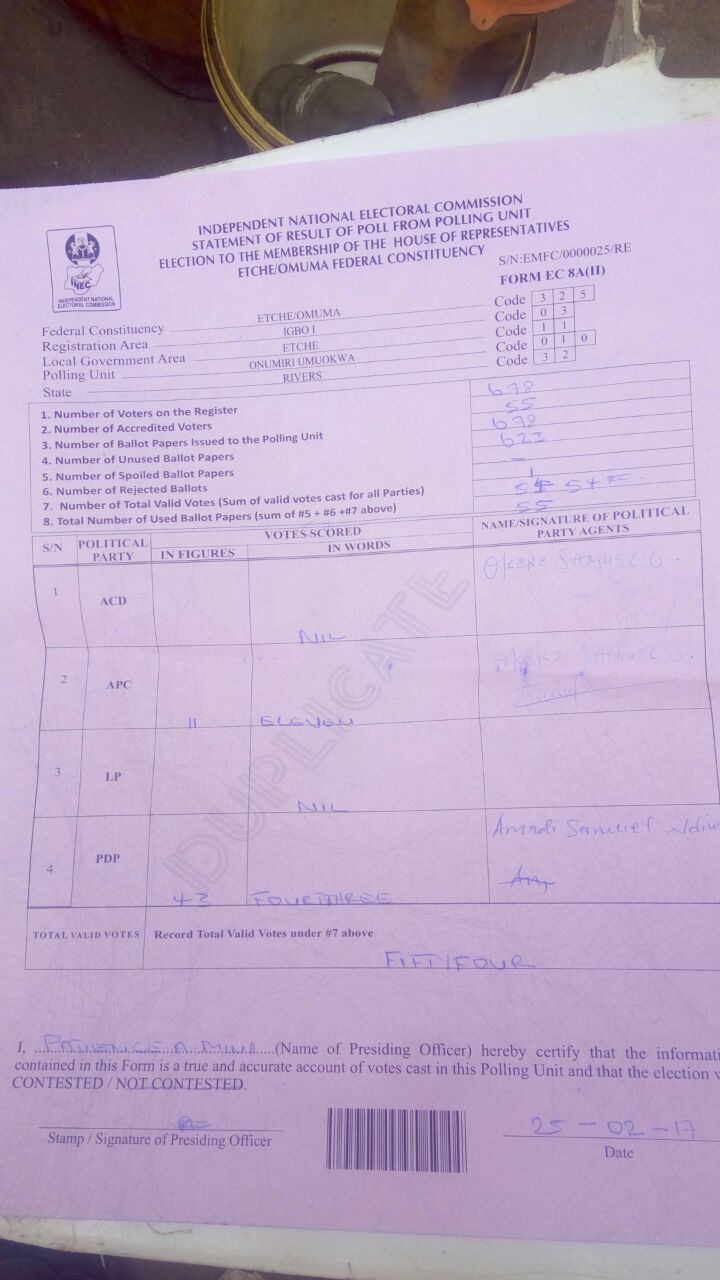 INDEPENDENT NATIONAL ELECTORAL COMMISSION
STATEMENT OF RESULT OF POLL FROM POLLING UNIT
ELECTION TO THE MEMBERSHIP OF THE HOUSE OF REPRESENTATIVES
ETCHE/OMUMA FEDERAL CONSTITUENCY
S/N:EMFC/0000025/RE
FORM EC 8A(II)
INEC
INDEPENDENT NATIONAL
ELECTORAL COMMISSION
Federal Constituency ETCHE/OMUMA Code 3 2 5
Registration Area IGBO I Code 0 3
Local Government Area ETCHE Code 1 1
Polling Unit ONUMIRI UMUOKWA Code 0 1 0
State RIVERS Code 3 2
1. Number of Voters on the Register 678
2. Number of Accredited Voters 55
3. Number of Ballot Papers Issued to the Polling Unit 678
4. Number of Unused Ballot Papers 623
5. Number of Spoiled Ballot Papers –
6. Number of Rejected Ballots 1
7. Number of Total Valid Votes (Sum of valid votes cast for all Parties) 54
8. Total Number of Used Ballot Papers (sum of #5 + #6 +#7 above) 55
S/N POLITICAL PARTY VOTES SCORED NAME/SIGNATURE OF POLITICAL PARTY AGENTS
IN FIGURES IN WORDS
1 ACD NIL Okere Samuel O.
2 APC 11 ELEVEN Okere Samuel O.
3 LP NIL
4 PDP 43 FOURTHREE Amadi Samuel
DUPLICATE
TOTAL VALID VOTES Record Total Valid Votes under #7 above
FIFTYFOUR
I, PATIENCE A. (Name of Presiding Officer) hereby certify that the informati
contained in this Form is a true and accurate account of votes cast in this Polling Unit and that the election w
CONTESTED / NOT CONTESTED.
25-02-17
Stamp / Signature of Presiding Officer
Date